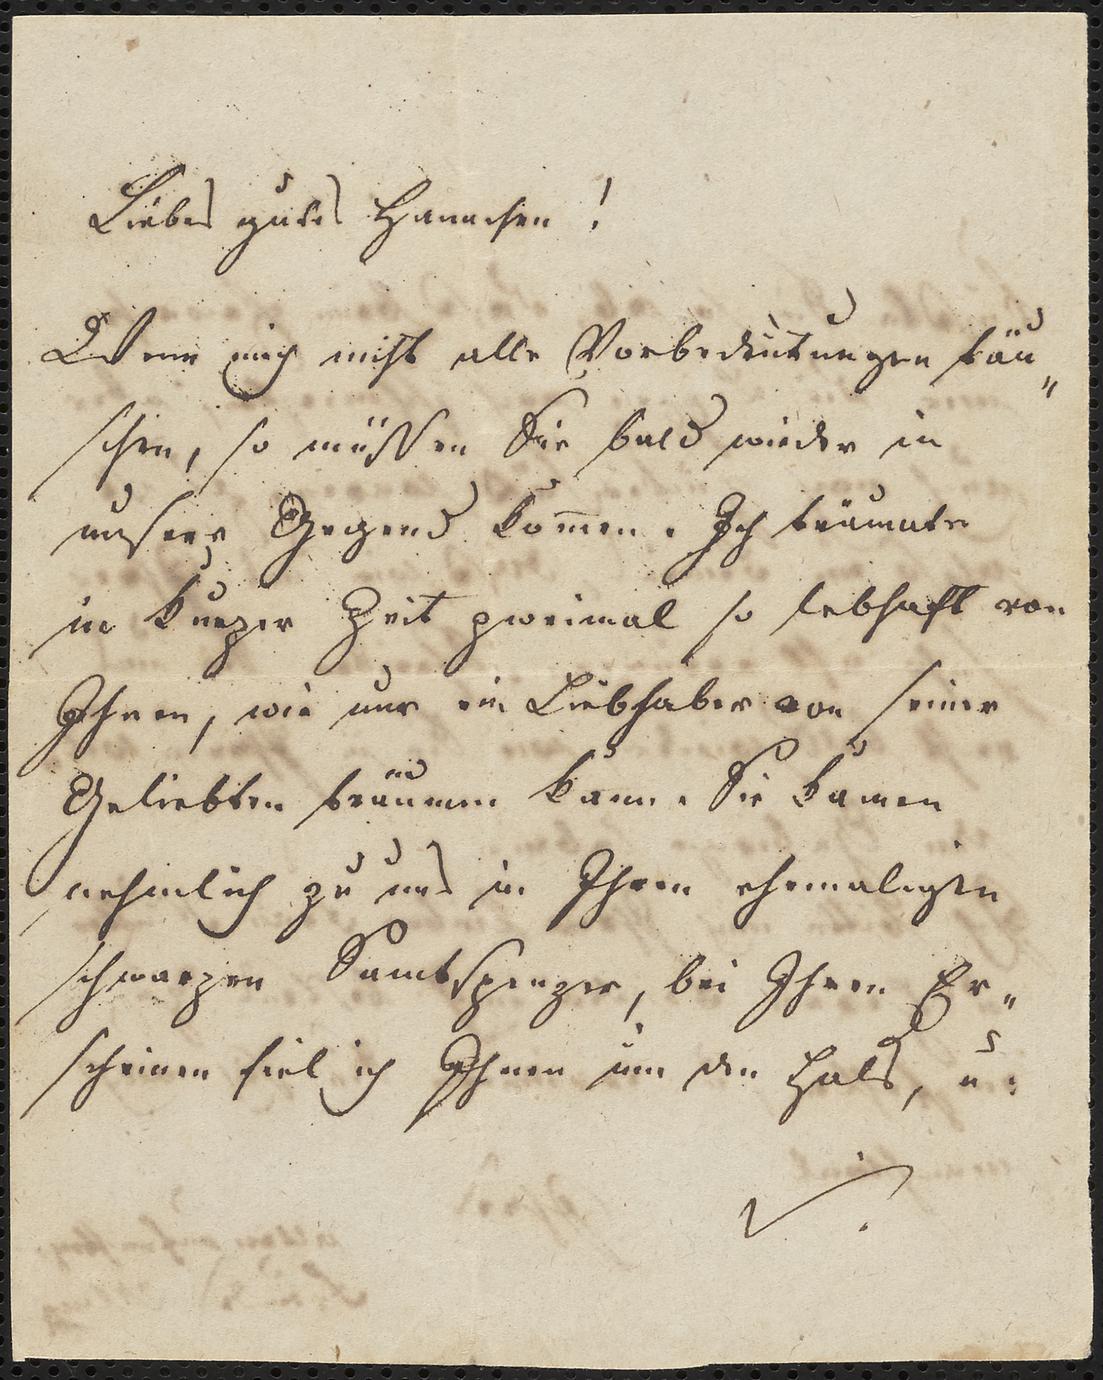 Liebes gutes Hannchen!
Wenn mich nicht alle Vorbedeutungen täu„
schen, so müssen Sie bald wieder in
unsere Gegend kom̅en. Ich träumte
in kurzer Zeit zweimal so lebhaft von
Ihnen, wie nur ein Liebhaber von seiner
Geliebten träumen kann. Sie kamen
nehmlich zu uns in Ihren ehemaligen
schwarzen Samtspenzer, bei Ihren Er„
scheinen fiel ich Ihnen um den Hals, u: